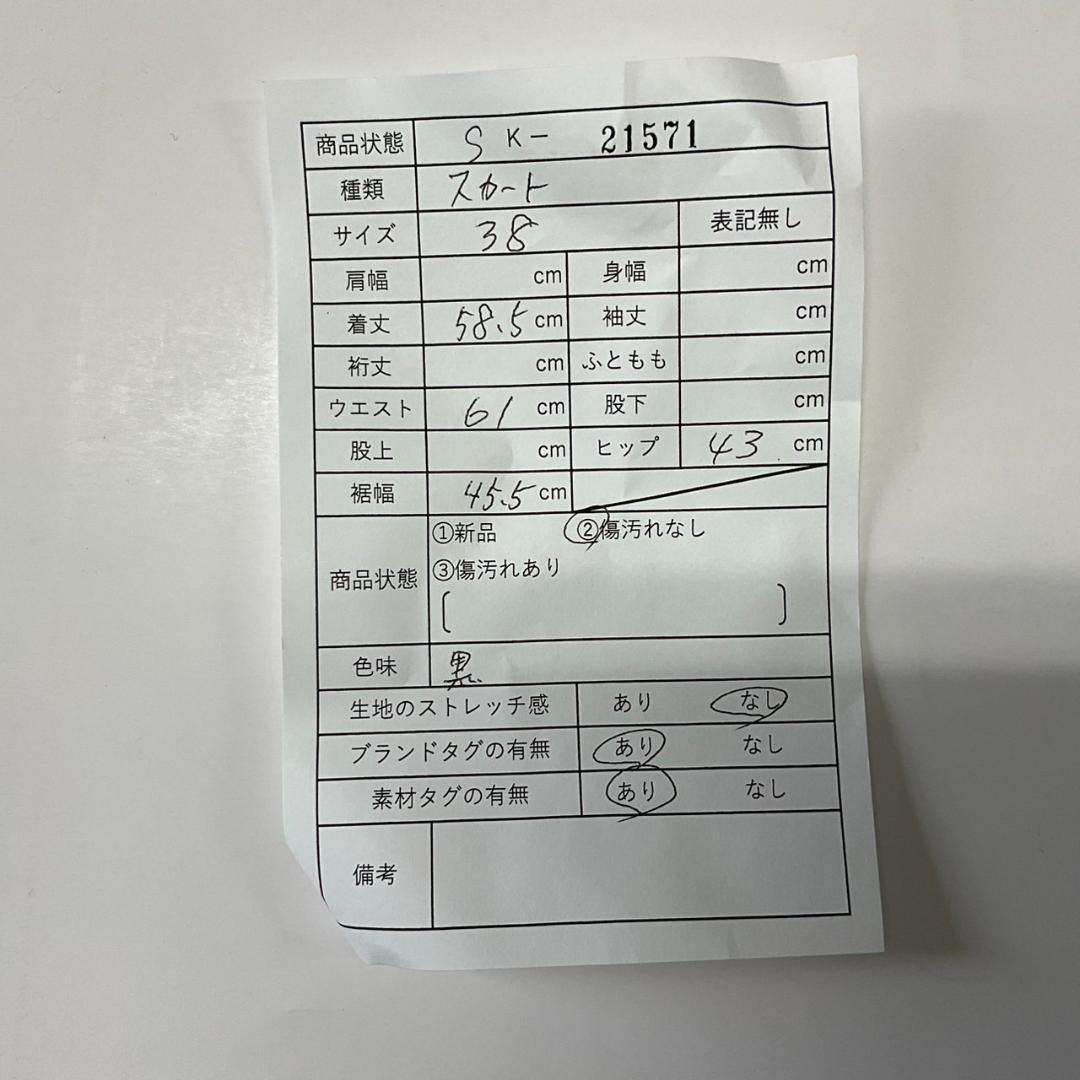 商品状態 S K- 21571
種類 スカート
サイズ 38 表記無し
肩幅 cm 身幅 cm
着丈 58.5 cm 袖丈 cm
裄丈 cm ふともも cm
ウエスト 61 cm 股下 cm
股上 cm ヒップ 43 cm
裾幅 45.5 cm
①新品 ②傷汚れなし
商品状態 ③傷汚れあり
[ ]
色味 黒
生地のストレッチ感 あり なし
ブランドタグの有無 あり なし
素材タグの有無 あり なし
備考